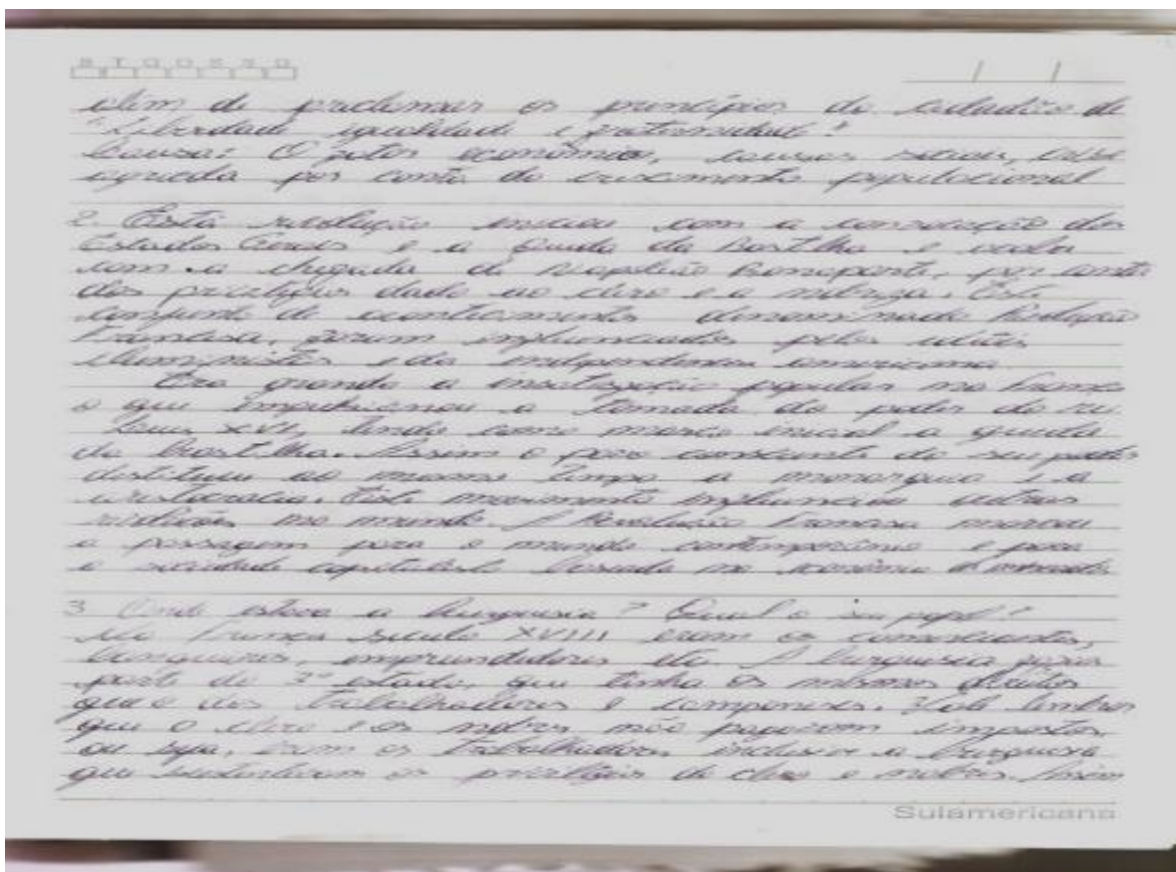 S T Q Q S S D
além de proclamar os princípios de cidadão de
"Liberdade igualdade e fraternidade"
Causa: O fator econômico, causas sociais, crise
agrícola por conta do crescimento populacional
2. Esta revolução iniciou com a convocação dos
Estados Gerais e a Queda da Bastilha e
com a chegada de Napoleão Bonaparte, por conta
dos privilégios dado ao clero e a nobreza. Este
conjunto de acontecimentos denominado Revolução
Francesa, foram influenciados pelos ideais
iluministas e da independência americana
Era grande a insatisfação popular na França
o que impulsionou a tomada do poder do rei
Luis XVI, tendo como marco inicial a queda
da Bastilha. Assim o povo consciente do seu poder
destituiu ao mesmo tempo a monarquia e a
aristocracia. Este movimento influenciou outras
no mundo. A Revolução Francesa marcou
a passagem para o mundo contemporâneo e para
a sociedade capitalista baseada na economia de mercado
3 Onde estava a burguesia? Qual o seu papel?
Na França século XVIII eram os comerciantes,
banqueiros, empreendedores etc. A burguesia fazia
parte do 3º estado, que tinha os mesmos direitos
que o dos trabalhadores e camponeses. Vale lembrar
que o clero e os nobres não pagavam impostos
ou seja, eram os trabalhadores, inclusive a burguesia
que sustentavam os privilégios do clero e nobres. Assim
Sulamericana